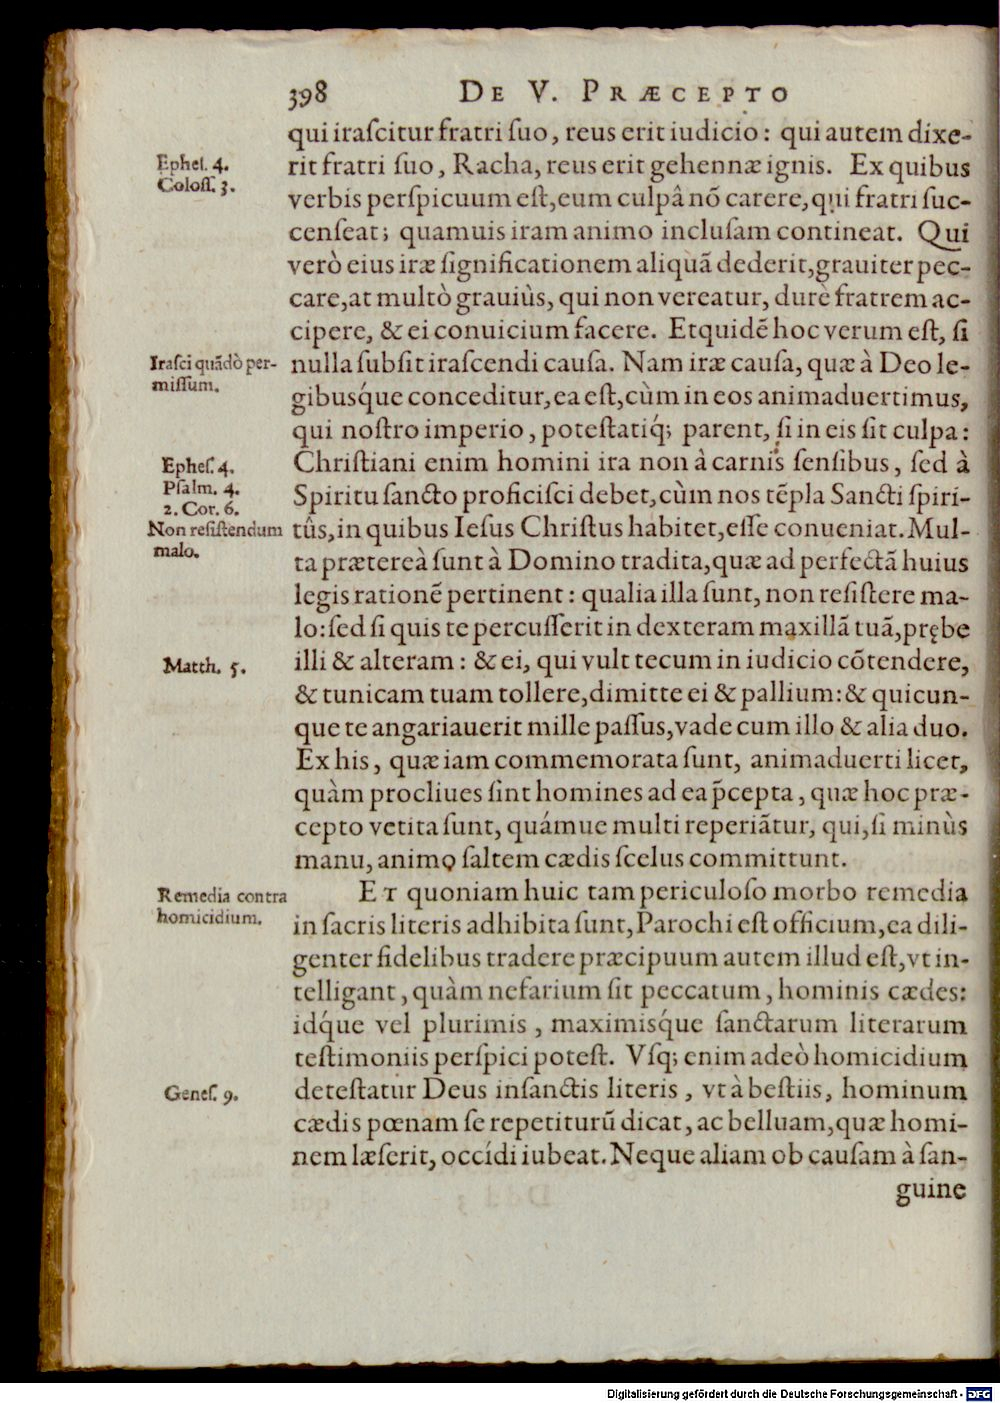 398 DE V. PRÆCEPTO
qui iraſcitur fratri ſuo, reus erit iudicio: qui autem dixe-
Epheſ. 4.
rit fratri ſuo, Racha, reus erit gehennæ ignis. Ex quibus
Coloſſ. 3.
verbis perſpicuum eſt, eum culpâ nõ carere, qui fratri ſuc-
cenſeat; quamuis iram animo incluſam contineat. Qui
verò eius iræ ſignificationem aliquã dederit, grauiter pec-
care, at multò grauiùs, qui non vereatur, durè fratrem ac-
cipere, & ei conuicium facere. Et quidẽ hoc verum eſt, ſi
Iraſci quãdò per-
miſſum.
nulla ſubſit iraſcendi cauſa. Nam iræ cauſa, quæ à Deo le-
gibusq́ue conceditur, ea eſt, cùm in eos animaduertimus,
qui noſtro imperio, poteſtatiq́; parent, ſi in eis ſit culpa:
Epheſ. 4.
Chriſtiani enim homini ira non à carnis ſenſibus, ſed à
Pſalm. 4.
2. Cor. 6.
Spiritu ſancto proficiſci debet, cùm nos tẽpla Sancti ſpirí-
Non reſiſtendum
malo.
tûs, in quibus Ieſus Chriſtus habitet, eſſe conueniat. Mul-
ta prætereà ſunt à Domino tradita, quæ ad perfectã huius
legis rationẽ pertinent: qualia illa ſunt, non reſiſtere ma-
lo: ſed ſi quis te percuſſerit in dexteram maxillã tuã, prębe
Matth. 5.
illi & alteram: & ei, qui vult tecum in iudicio cõtendere,
& tunicam tuam tollere, dimitte ei & pallium: & quicun-
que te angariauerit mille paſſus, vade cum illo & alia duo.
Ex his, quæ iam commemorata ſunt, animaduerti licet,
quàm procliues ſint homines ad ea p̃cepta, quæ hoc præ-
cepto vetita ſunt, quámue multi reperiãtur, qui, ſi minùs
manu, animo ſaltem cædis ſcelus committunt.
Remedia contra
homicidium.
ET quoniam huic tam periculoſo morbo remedia
in ſacris literis adhibita ſunt, Parochi eſt officium, ea dili-
genter fidelibus tradere præcipuum autem illud eſt, vt in-
telligant, quàm nefarium ſit peccatum, hominis cædes:
idq́ue vel plurimis, maximisq́ue ſanctarum literarum
teſtimoniis perſpici poteſt. Vſq; enim adeò homicidium
Geneſ. 9.
deteſtatur Deus in ſanctis literis, vt à beſtiis, hominum
cædis pœnam ſe repetiturũ dicat, ac belluam, quæ homi-
nem læſerit, occídi iubeat. Neque aliam ob cauſam à ſan-
guine
Digitalisierung gefördert durch die Deutsche Forschungsgemeinschaft - DFG